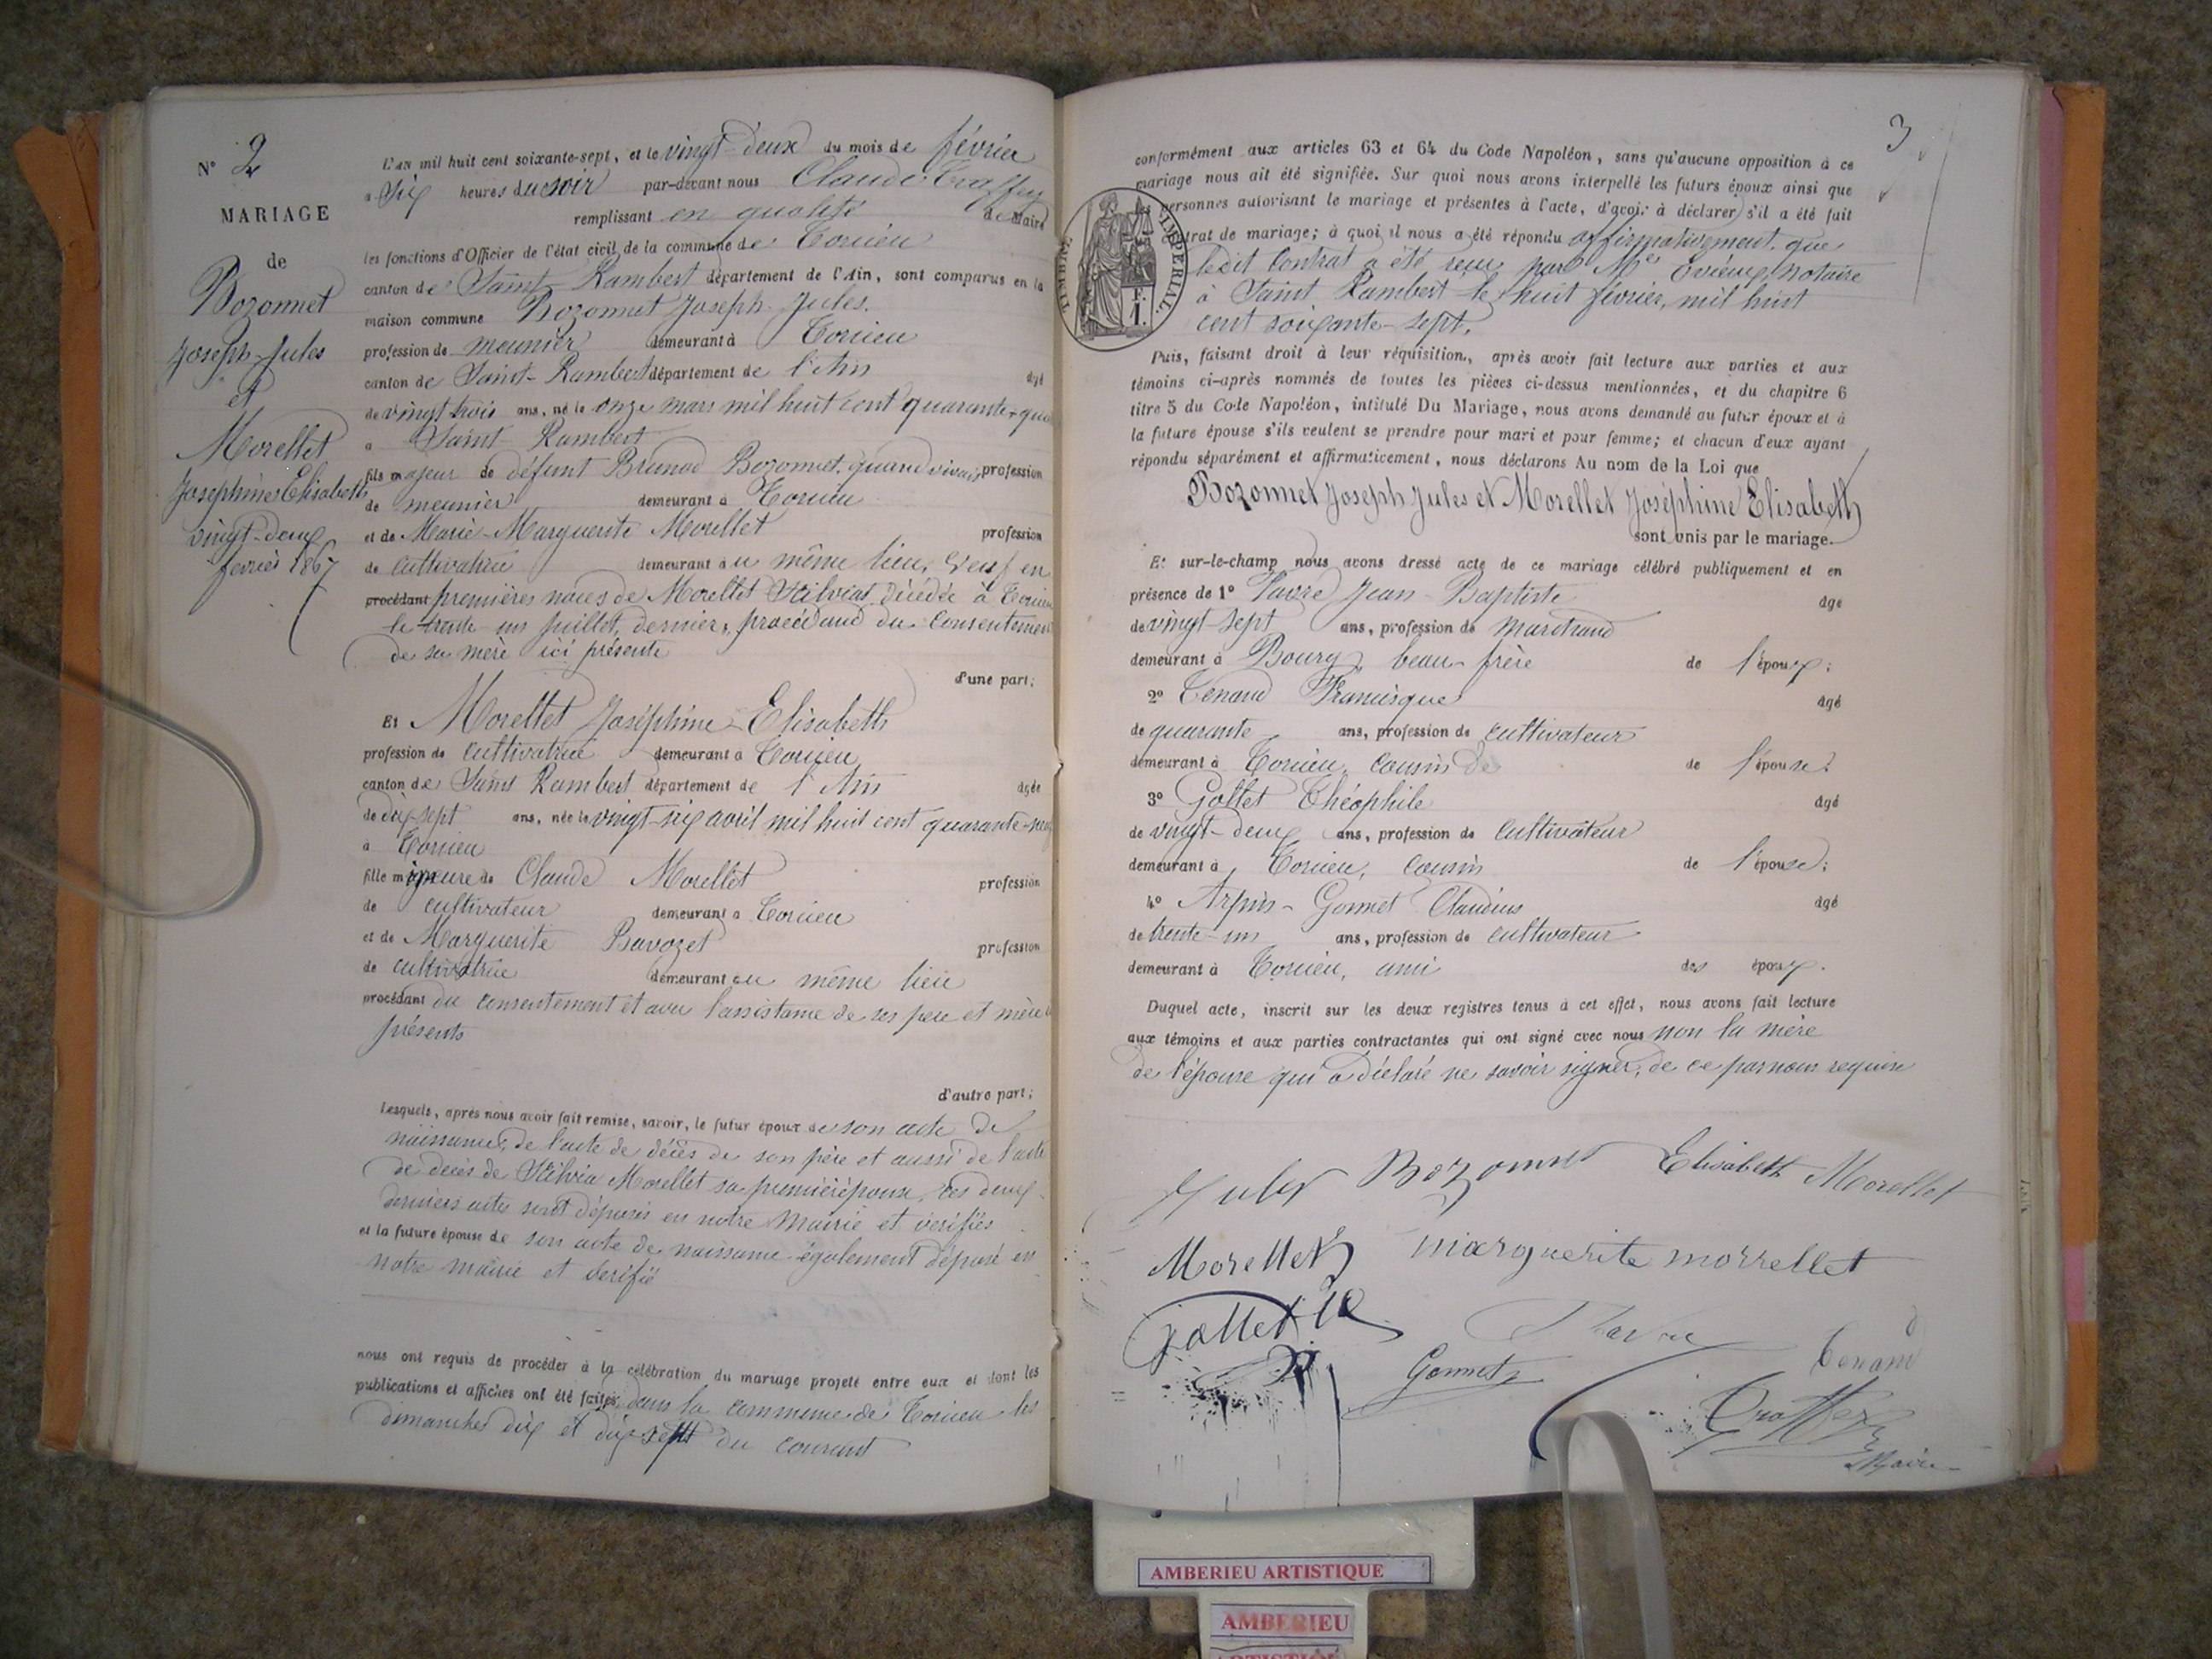 N° 2
MARIAGE
de
Bozonnet
Joseph-Jules
et
Morellet
Josephine Elisabeth
vingt-deux
fevrier 1867
L'an mil huit cent soixante-sept, et le vingt-deux du mois de février
à Six heures du soir par-devant nous Claude Craffey
remplissant en qualité de Maire
les fonctions d'Officier de l'état civil de la commune de Torcieu
canton de Saint Rambert département de l'Ain, sont comparus en la
maison commune Bozonnet Joseph-Jules.
profession de meunier demeurant à Torcieu
canton de Saint-Rambert département de l'Ain âgé
de vingt trois ans, né le onze mars mil huit cent quarante-qua
à Saint Rambert
fils majeur de défunt Brunod Bozonnet, quand vivait profession
de meunier demeurant à Torcieu
et de Marie-Marguerite Morellet profession
de cultivatrice demeurant au même lieu, Veuf en
procédant premières noces de Morellet Stilvia, Décédée à Torcieu
le trente un juillet, dernier, procédant du Consentement
de sa mère ici présente
d'une part;
Et Morellet Joséphine Elisabeth
profession de cultivatrice demeurant à Torcieu
canton de Saint Rambert département de l'Ain âgée
de dix-sept ans, née le vingt-six avril mil huit cent quarante-neuf
à Torcieu
fille mineure de Claude Morellet profession
de cultivateur demeurant à Torcieu
et de Marguerite Bavozet profession
de cultivatrice demeurant au même lieu
procédant du consentement et avec l'assistance de ses père et mère
présents
d'autre part;
Lesquels, après nous avoir fait remise, savoir, le futur époux de son acte de
naissance, de l'acte de décès de son père et aussi de l'acte
de décès de Stilvia Morellet sa première épouse, ces deux
derniers actes sont déposés en notre Mairie et vérifiés
et la future épouse de son acte de naissance également déposé en
notre mairie et vérifié
nous ont requis de procéder à la célébration du mariage projeté entre eux et dont les
publications et affiches ont été faites dans la commune de Torcieu les
dimanches dix et dix sept du courant
3
conformément aux articles 63 et 64 du Code Napoléon, sans qu'aucune opposition à ce
mariage nous ait été signifiée. Sur quoi nous avons interpellé les futurs époux ainsi que
les personnes autorisant le mariage et présentes à l'acte, d'avoir à déclarer s'il a été fait
trat de mariage; à quoi il nous a été répondu affirmativement que
ledit Contrat a été reçu par Me Evieux, notaire
à Saint Rambert le huit février, mil huit
cent soixante-sept.
TIMBRE IMPERIAL.
F.
1.
Puis, faisant droit à leur réquisition, après avoir fait lecture aux parties et aux
témoins ci-après nommés de toutes les pièces ci-dessus mentionnées, et du chapitre 6
titre 5 du Code Napoléon, intitulé Du Mariage, nous avons demandé au futur époux et à
la future épouse s'ils veulent se prendre pour mari et pour femme; et chacun d'eux ayant
répondu séparément et affirmativement, nous déclarons Au nom de la Loi que
Bozonnet Joseph Jules et Morellet Joséphine Elisabeth
sont unis par le mariage.
Et sur-le-champ nous avons dressé acte de ce mariage célébré publiquement et en
présence de 1° Favre Jean-Baptiste âgé
de vingt-sept ans, profession de marchand
demeurant à Bourg, beau-frère de l'époux;
2° Tenand Francisque âgé
de quarante ans, profession de cultivateur
demeurant à Torcieu, cousin de de l'épouse;
3° Gollet Théophile âgé
de vingt-deux ans, profession de cultivateur
demeurant à Torcieu, cousin de l'épouse;
4° Arpin-Gonnet Claudius âgé
de trente-un ans, profession de cultivateur
demeurant à Torcieu, ami des époux.
Duquel acte, inscrit sur les deux registres tenus à cet effet, nous avons fait lecture
aux témoins et aux parties contractantes qui ont signé avec nous non la mère
de l'épouse qui a déclaré ne savoir signer, de ce par nous requise
Jules Bozonnet Elisabeth Morellet
Morellet marguerite morrellet
gollet
Gonnet
Tenand
Maire
AMBERIEU ARTISTIQUE
AMBERIEU
ARTISTIQUE